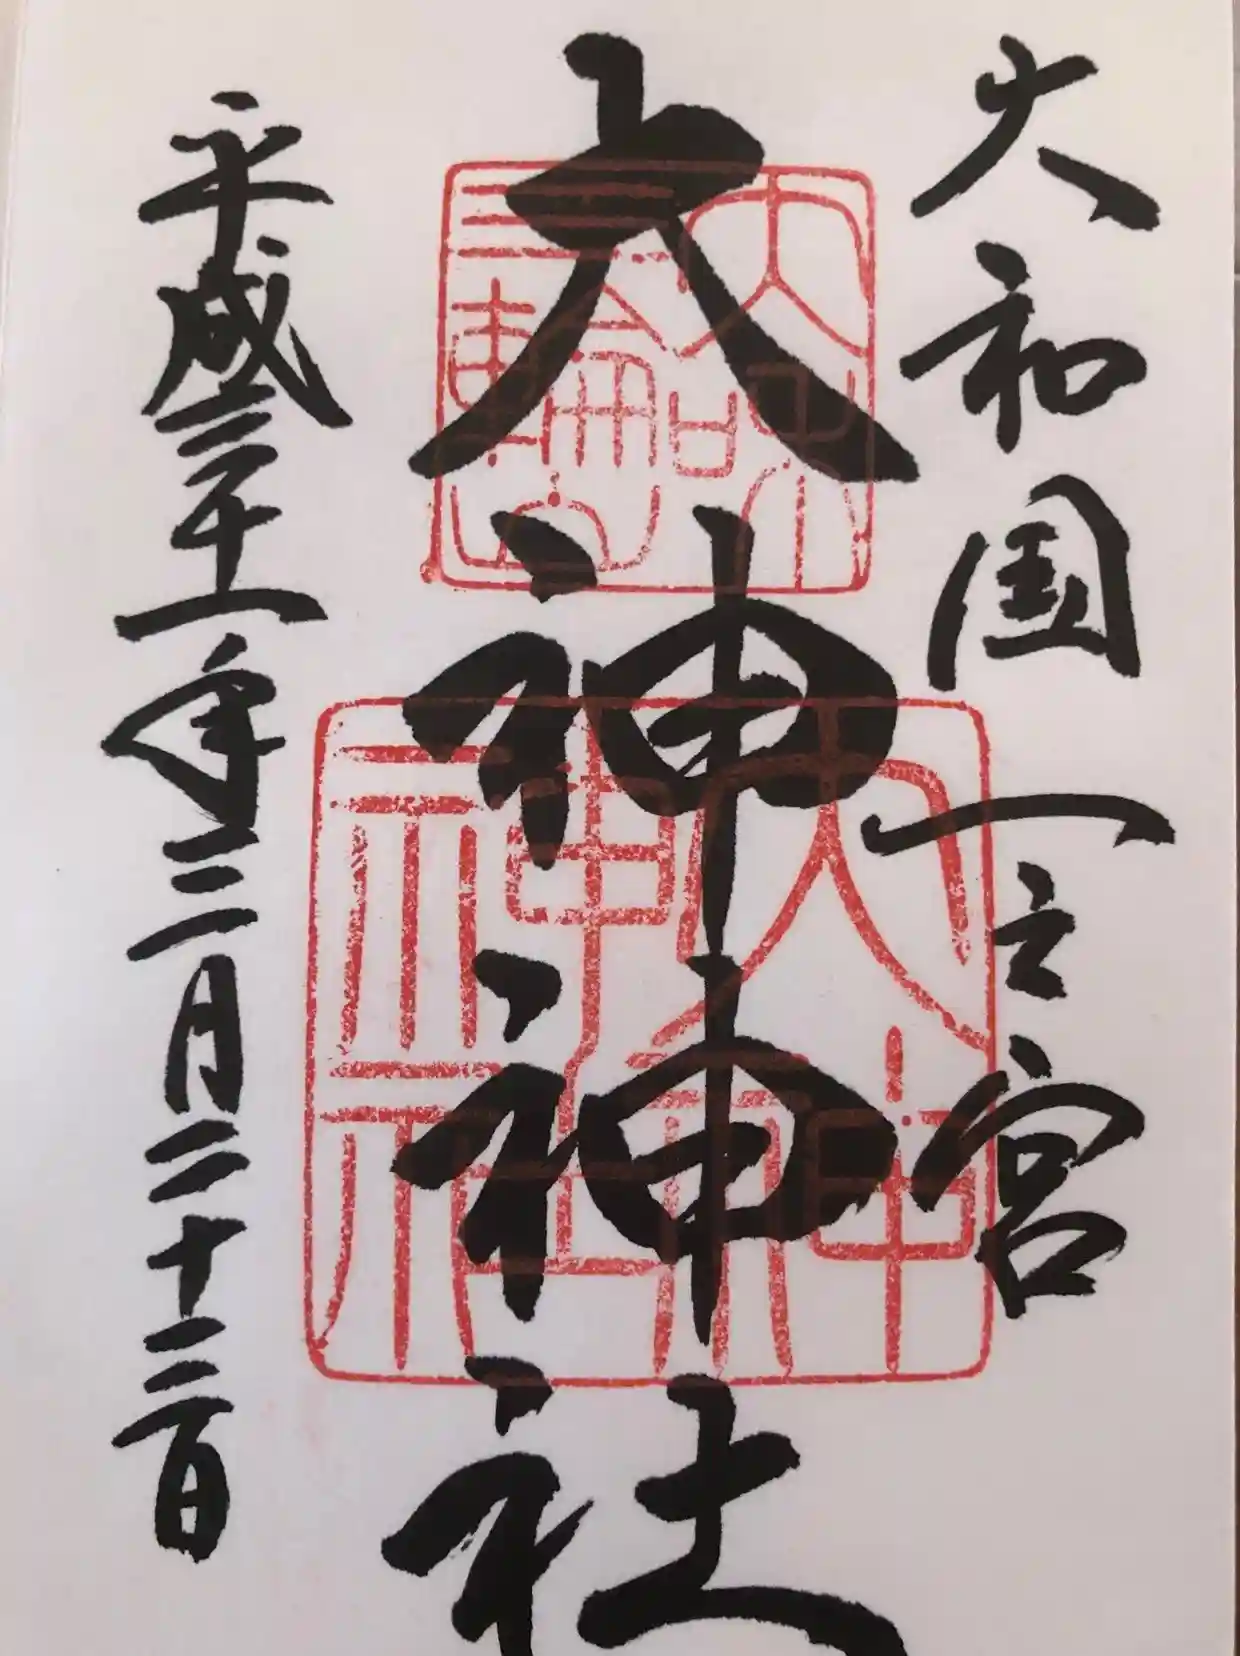 大和国一之宮
大神神社
平成三十一年三月二十三日
大和
三輪山
大神
神社